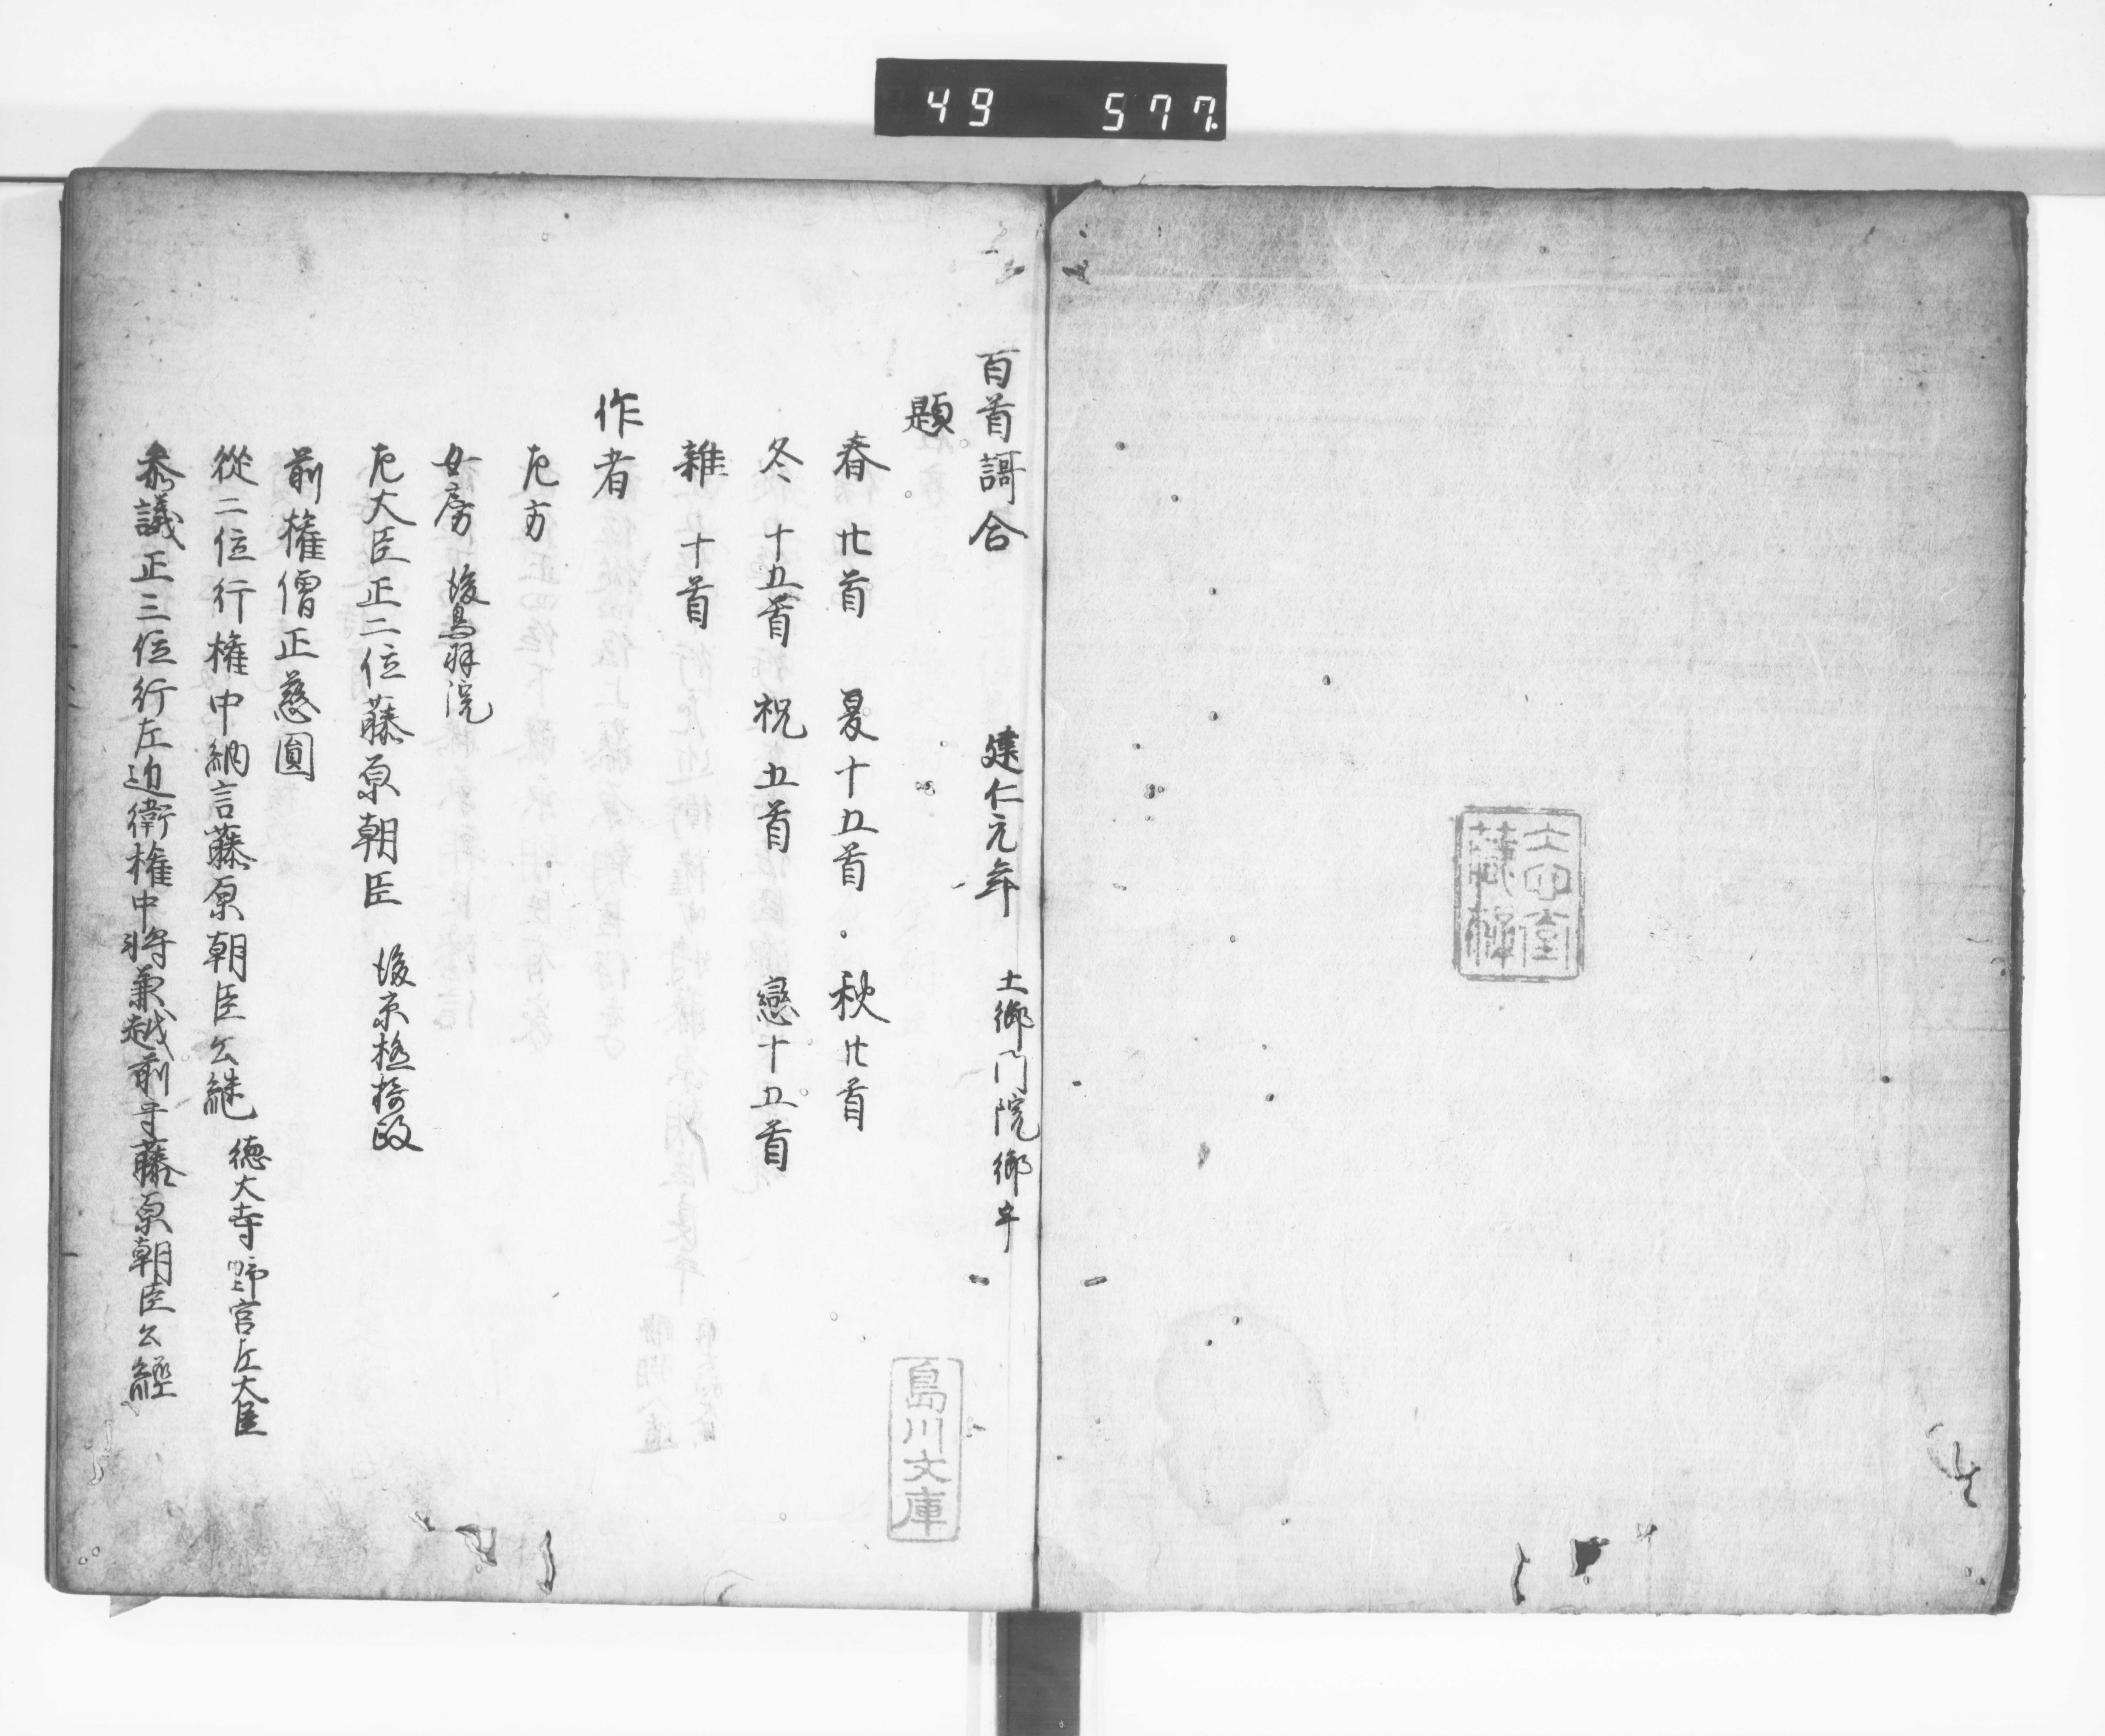 49 577
百首謌合 建仁元年 土御門院御宇
題
春廿首 夏十五首 秋廿首
冬十五首 祝五首 戀十五首
雜十首
作者
左方
女房 後鳥羽院
左大臣正二位藤原朝臣 後京極摂政
前権僧正慈圓
從二位行権中納言藤原朝臣公継 德大寺 野宮左大臣
参議正三位行左近衛権中将兼越前守藤原朝臣公經
島川文庫